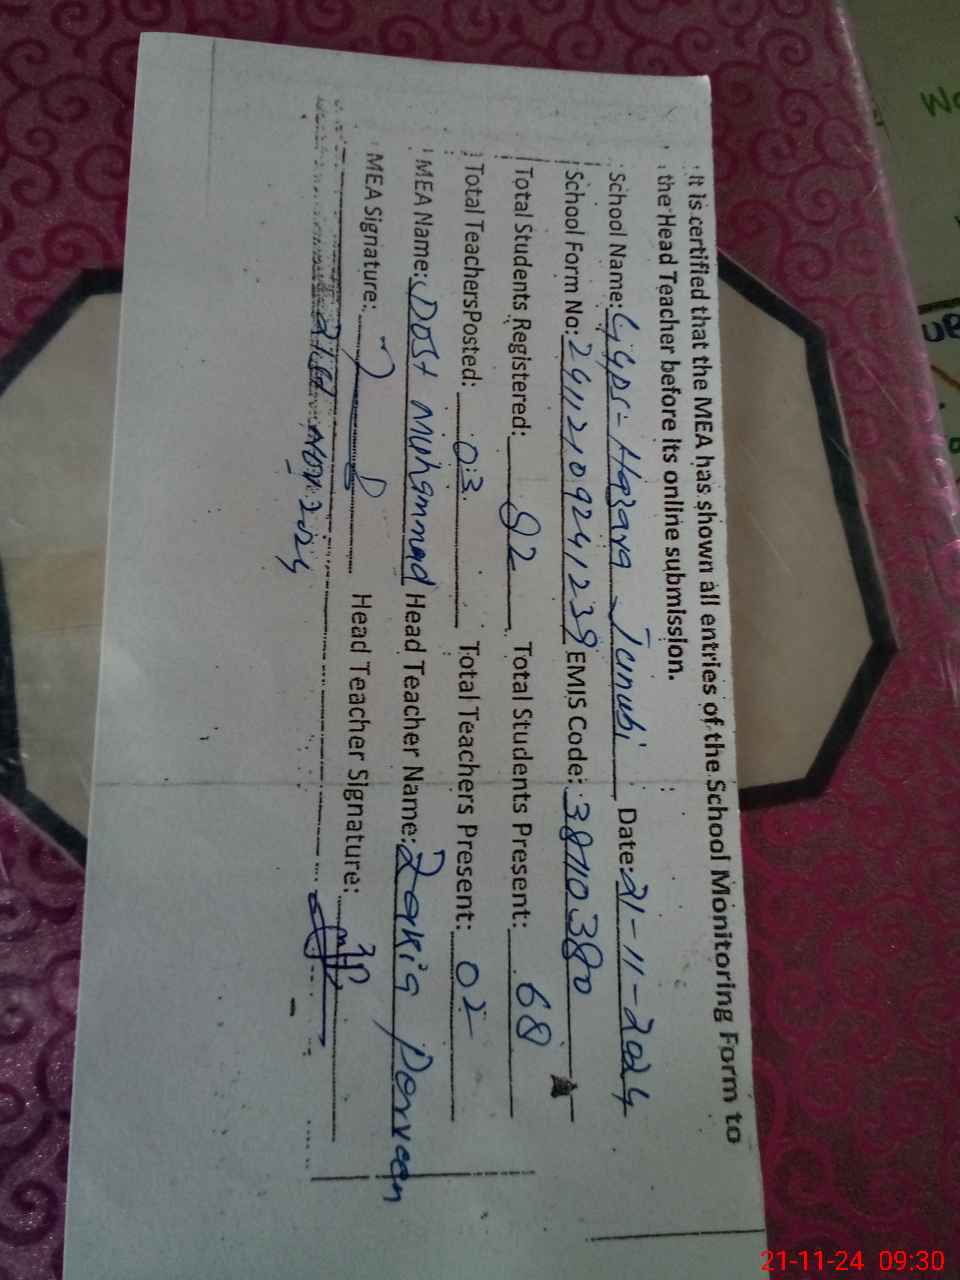 It is certified that the MEA has shown all entries of the School Monitoring Form to
the Head Teacher before its online submission.
School Name: GGPS-Hazara Janubi Date: 21-11-2024
School Form No: 24112109241239 EMIS Code: 38710380
Total Students Registered: 92 Total Students Present: 68
Total TeachersPosted: 03 Total Teachers Present: 02
MEA Name: Dost Muhammad Head Teacher Name: Zakia Parveen
MEA Signature: Head Teacher Signature:
21st Nov 2024
21-11-24 09:30